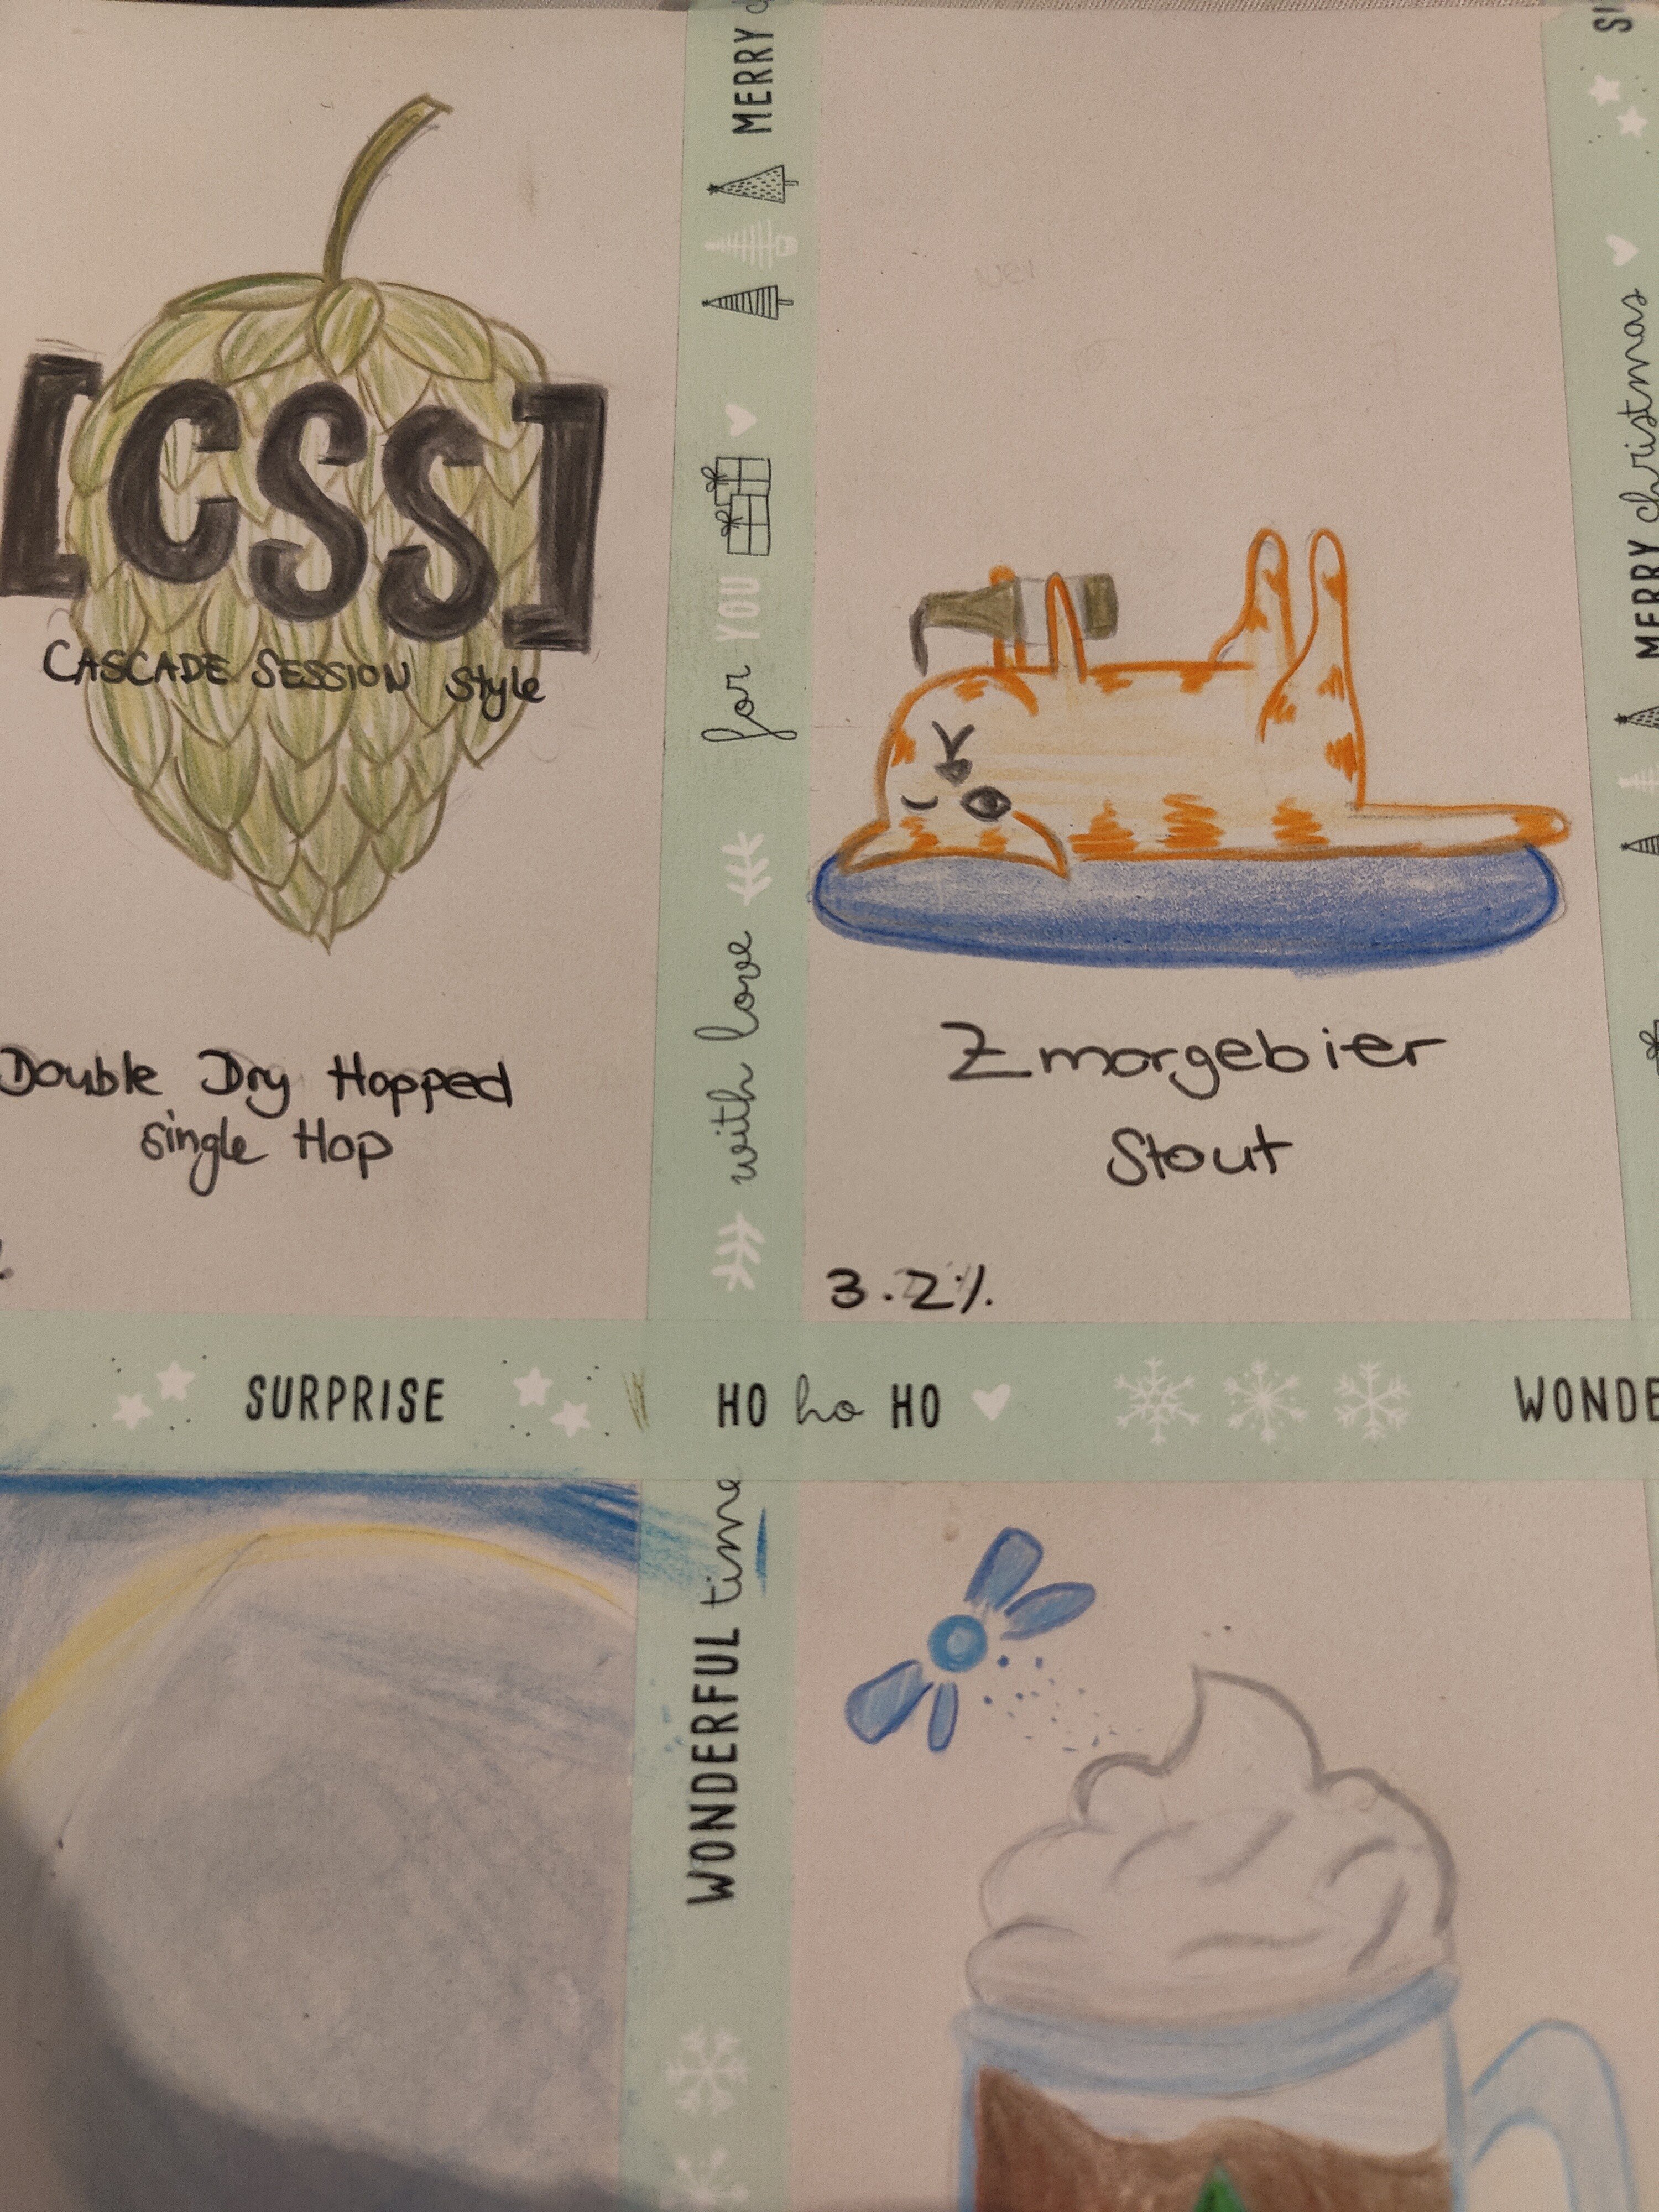 [CSS]
CASCADE SESSION Style
Double Dry Hopped
Single Hop
MERRY
for YOU
with love
Zmorgebier
Stout
3.2%
MERRY christmas
SURPRISE
HO ho HO
WONDE
WONDERFUL time